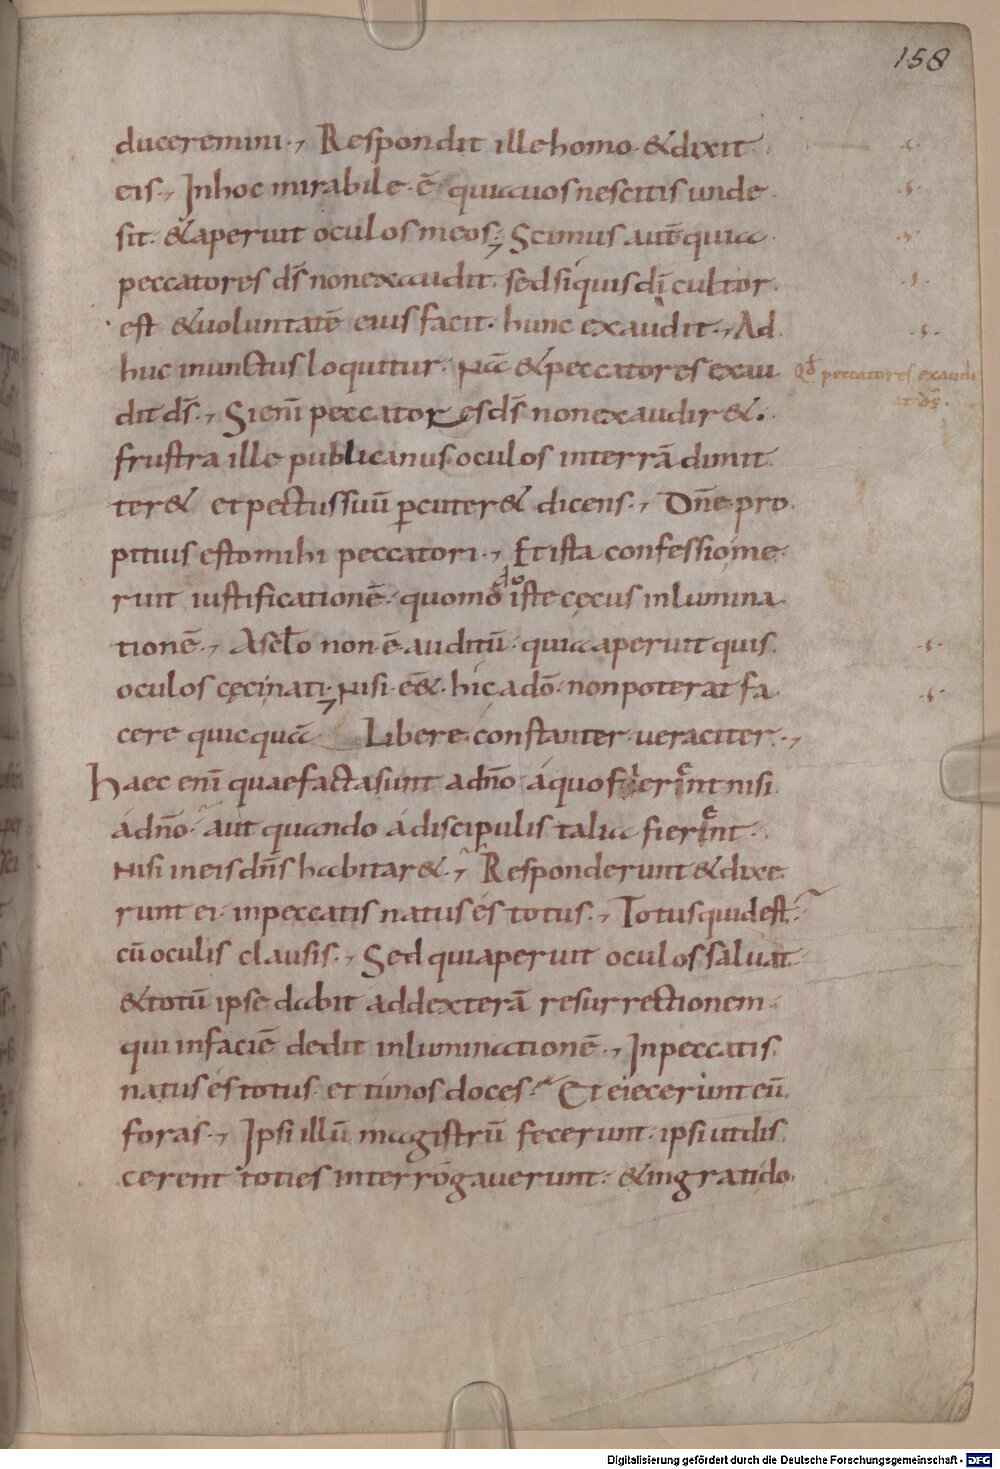 158
duceremini·, Respondit ille homo· &dixit·
eis·, In hoc mirabile· ē· quia uos nescitis unde·
sit· &aperuit oculos meos·, Scimus aut̄ quia
peccatores d̄s non exaudit· sed si quis d̄i cultor·
est &uoluntatē eius facit· hunc exaudit·, Ad
huc inunctus loquitur· Nā &peccatores exau
dit d̄s·, Si enī peccatores d̄s non exaudir&·
frustra ille publicanus oculos in terrā dimit
ter& et pectus suū ꝑcuter& dicens·, Dn̄e pro
pitius esto mihi peccatori·, Et ista confessio me
ruit iustificationē· quomodo iste cęcus inlumina
tionē·, A sc̄lo non· ē· auditū· quia aperuit quis
oculos cęci nati·, Nisi· ēē&· hic a dō· non poterat fa
cere quicquā Libere constanter ueraciter·,
Haec enī quae facta sunt a dn̄o a quo fierent nisi
a dn̄o· aut quando a discipulis talia fierent·
Nisi in eis dn̄s habitar&·, Responderunt &dixe
runt ei· in peccatis natus és totus·, Totus quid est·
cū oculis clausis·, Sed qui aperuit oculos saluat
&totū ipse dabit ad dexterā resurrectionem
qui in faciē dedit inluminationē·, In peccatis
natus és totus· et tu nos doces· Et eiecerunt eū
foras·, Ipsi illū magistrū fecerunt· ipsi ut dis
cerent toties interrogauerunt· &ingrati do
Qd̄ peccatores exaudi
at d̄s·
Digitalisierung gefördert durch die Deutsche Forschungsgemeinschaft - DFG